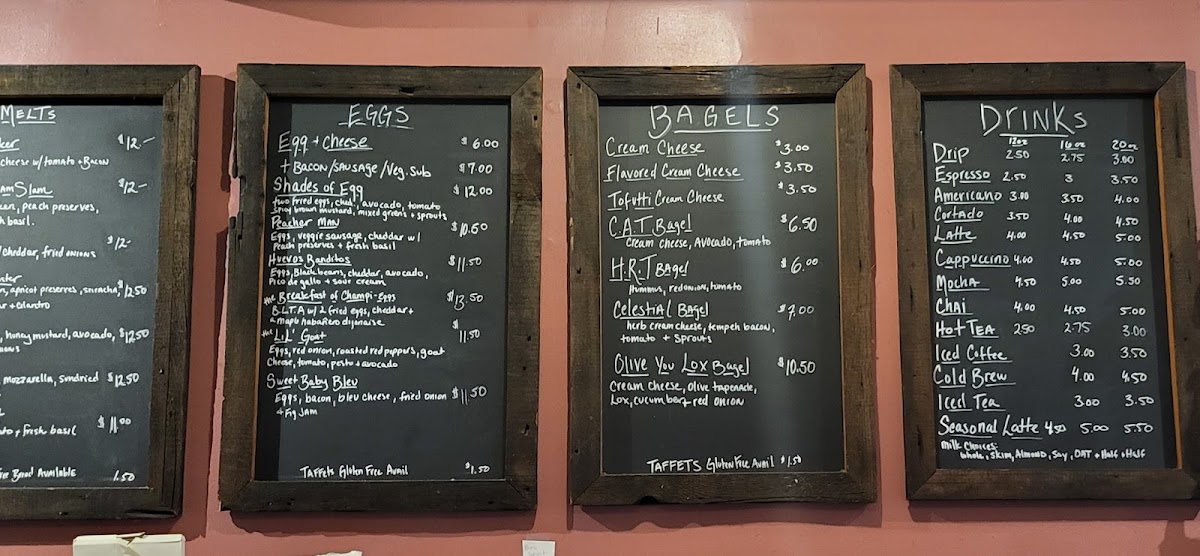 MELTS
$12.-
cheese w/tomato + Bacon
Slam $12-
peach preserves,
basil.
$12-
cheddar, fried onions
apricot preserves, sriracha, $12.50
+ cilantro
honey mustard, avocado, $12.50
mozzarella, sundried $12.50
+ fresh basil $11.00
Free Bread Available 1.50
EGGS
Egg + cheese $6.00
+ Bacon/Sausage/Veg. Sub $7.00
Shades of Egg $12.00
two fried eggs, ched, avocado, tomato
spicy brown mustard, mixed greens + sprouts
Peacher Man $10.50
Eggs, veggie sausage, cheddar w/
Peach preserves + fresh basil
Huevos Banditos $11.50
Eggs, Black beans, cheddar, avocado,
Pico de gallo + sour cream
the Breakfast of Champi-Eggs $13.50
B.L.T.A w/ 2 fried eggs, cheddar +
a maple habañero dijonaise
the Lil' Goat $11.50
Eggs, red onion, roasted red peppers, goat
cheese, tomato, pesto + avocado
Sweet Baby Bleu
Eggs, bacon, bleu cheese, fried onion $11.50
+ Fig Jam
TAFFETS Gluten Free Avail $1.50
BAGELS
Cream Cheese $3.00
Flavored Cream Cheese $3.50
Tofutti Cream Cheese $3.50
C.A.T Bagel $6.50
Cream cheese, Avocado, tomato
H.R.T Bagel $6.00
Hummus, red onion, tomato
Celestial Bagel $7.00
herb cream cheese, tempeh bacon,
tomato + sprouts
Olive You Lox Bagel $10.50
Cream cheese, olive tapenade,
Lox, cucumber + red onion
TAFFETS Gluten Free Avail $1.50
DRINKS
12oz 16oz 20oz
Drip 2.50 2.75 3.00
Espresso 2.50 3 3.50
Americano 3.00 3.50 4.00
Cortado 3.50 4.00 4.50
Latte 4.00 4.50 5.00
Cappuccino 4.00 4.50 5.00
Mocha 4.50 5.00 5.50
Chai 4.00 4.50 5.00
Hot Tea 2.50 2.75 3.00
Iced Coffee 3.00 3.50
Cold Brew 4.00 4.50
Iced Tea 3.00 3.50
Seasonal Latte 4.50 5.00 5.50
Milk Choices:
Whole, Skim, Almond, Soy, OAT + Half + Half